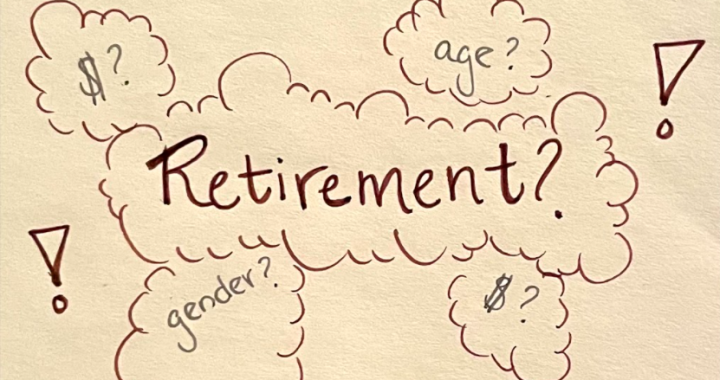 $?
age?
!
Retirement?
!
gender?
$?